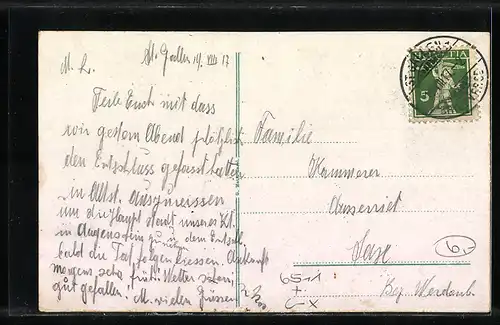 St. Gallen 14. VIII 17
M. L.
Teile Euch mit dass
wir gestern Abend plötzlich
den Entschluss gefasst hatten
in Altst. auszureissen
um die Haupt stadt unseres Kt.
in Augenschein zu nehmen dem Entschl.
bald die Tat folgen liessen. Ankunft
morgens sehr früh. Wetter schön,
gut gefallen. M. vielen Grüssen
Familie
Kammerer
Sax
Bez. Werdenb.
HELVETIA
5
6.-
65-1
+